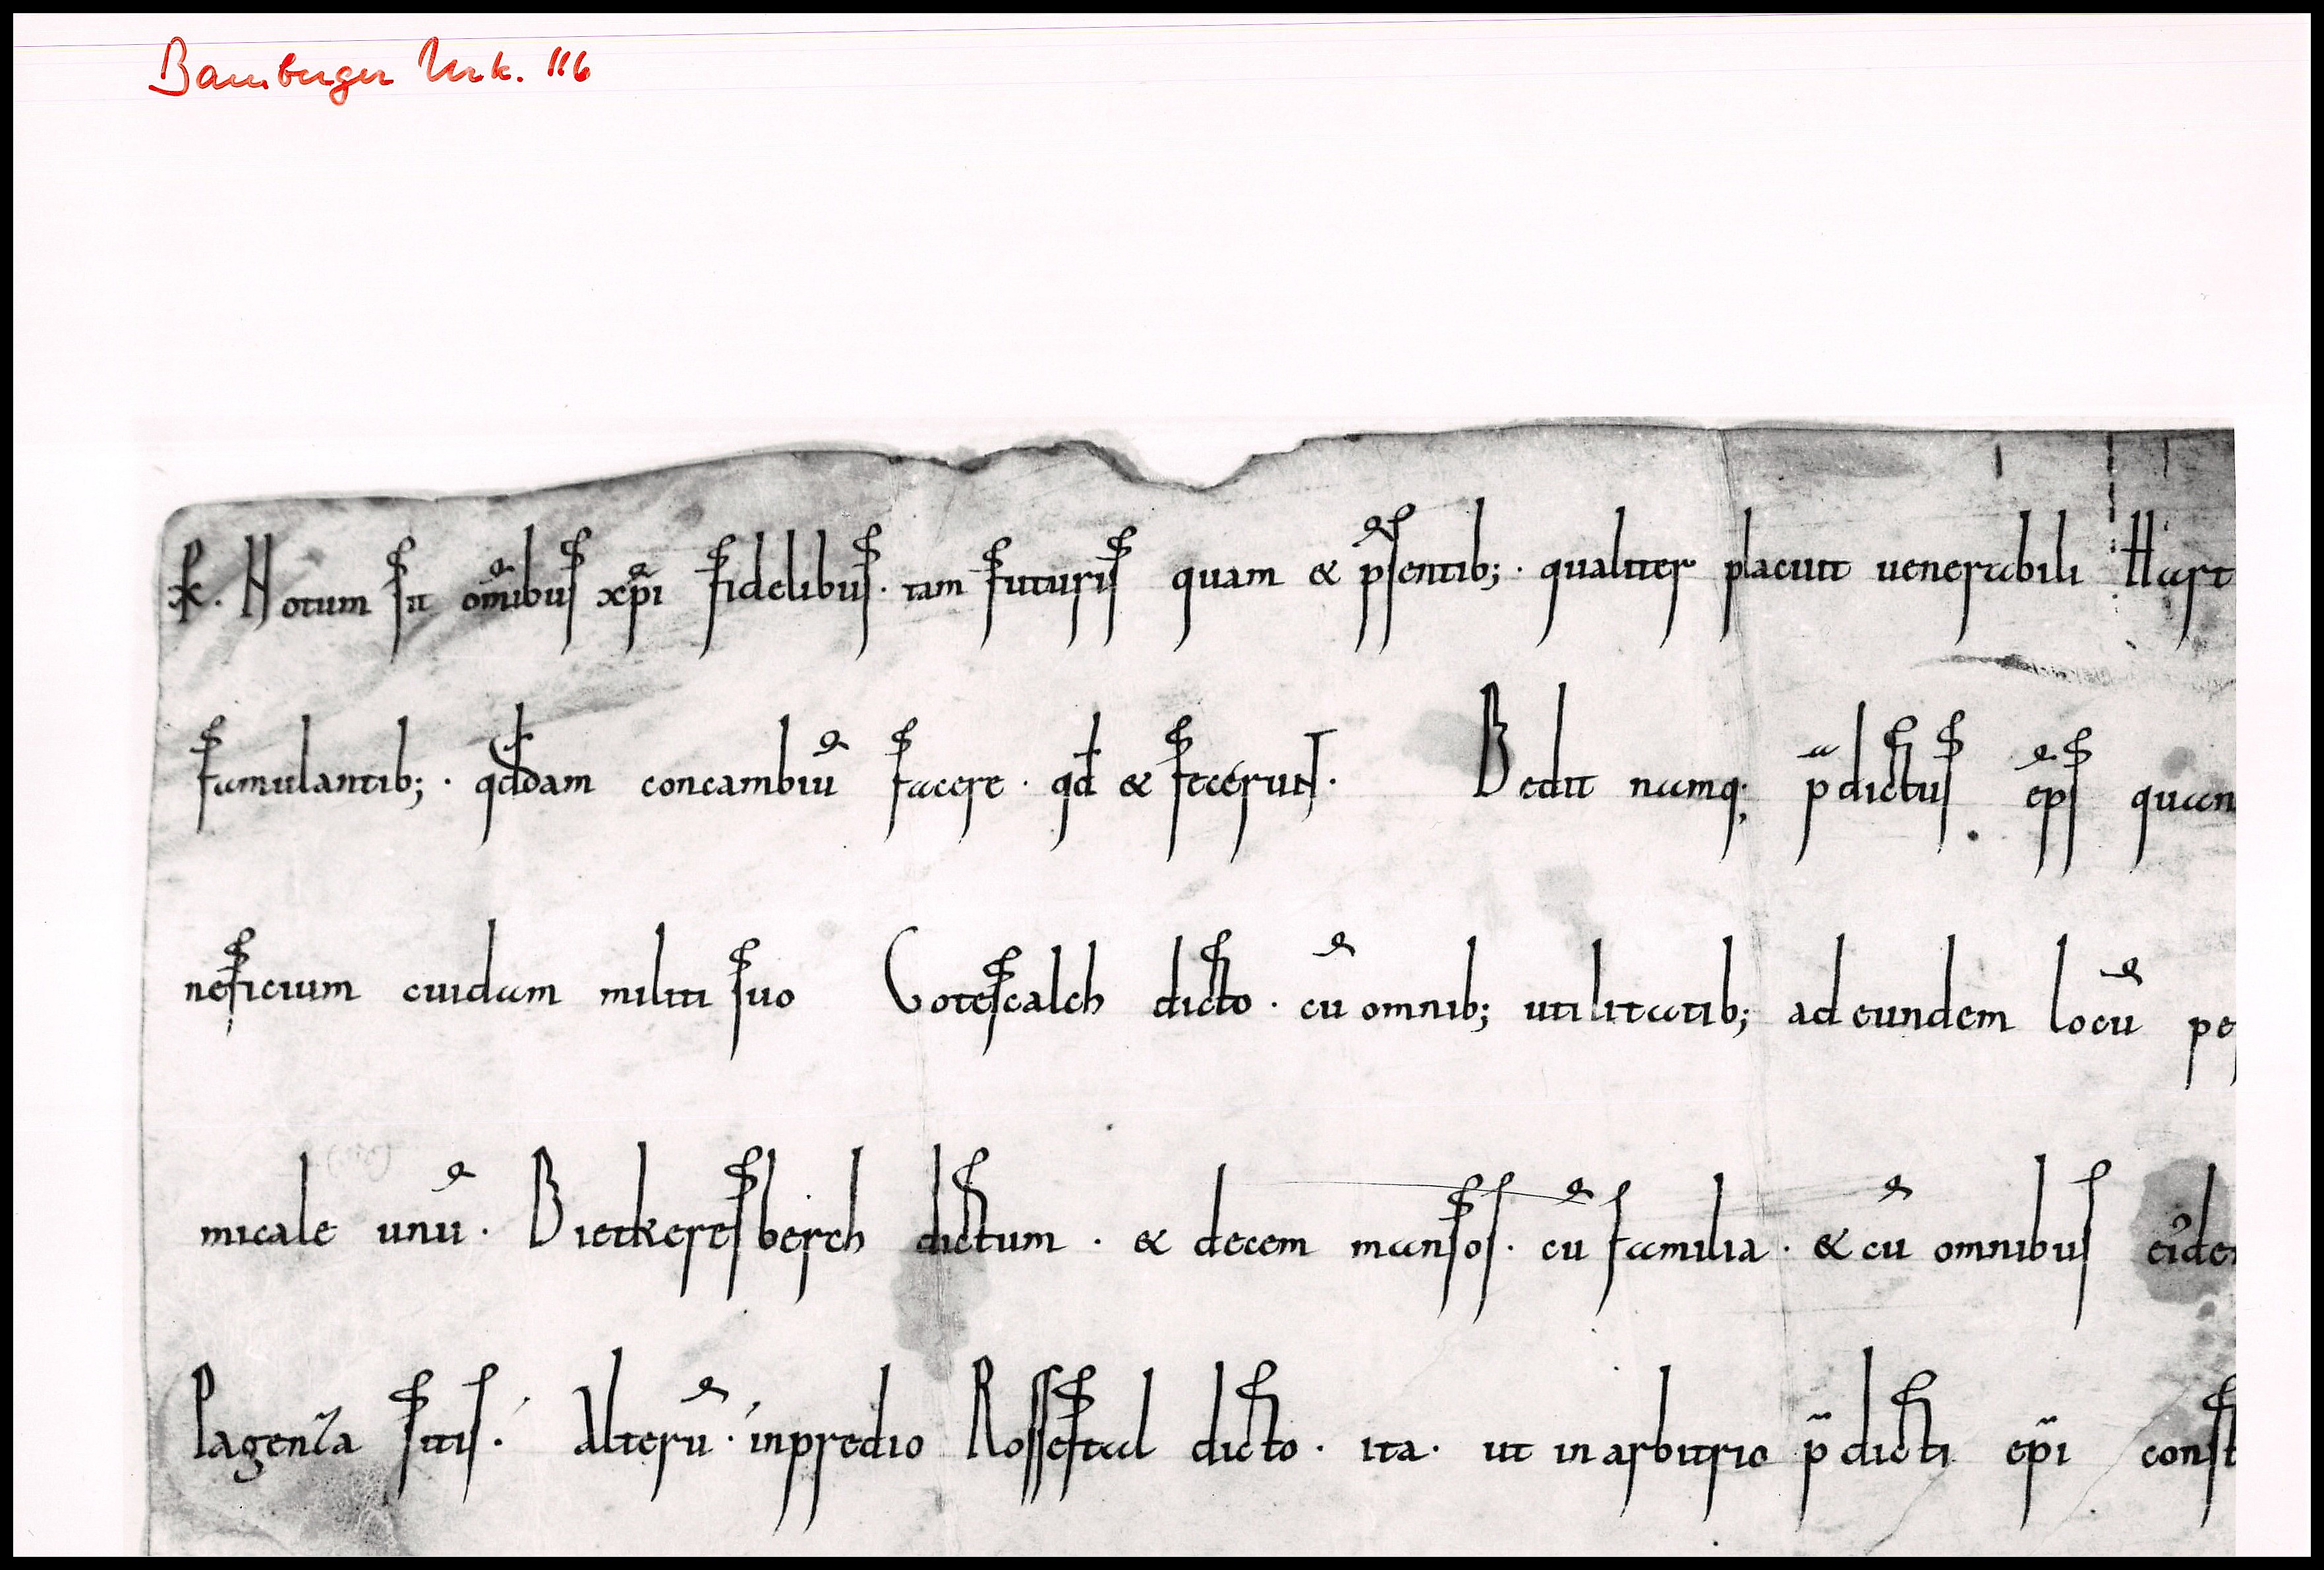 Bamberger Urk. 116
Notum sit om̄ibus xp̄i fidelibus · tam futuris quam & p̄sentib; · qualiter placuit uenerabili Hart
famulantib; · qddam concambiū facere · qd & fecerunt · Dedit namq; p̄dictus ep̄s quan
neficium cuidam militi suo Gotescalch dicto · cū omnib; utilitatib; ad eundem locū pe
micale unū · Dietkeresberch dictum · & decem mansos · cū familia · & cū omnibus eide
Plagenza sitis · Alterū · in predio Rossestal dicto · ita · ut in arbitrio p̄dicti ep̄i const